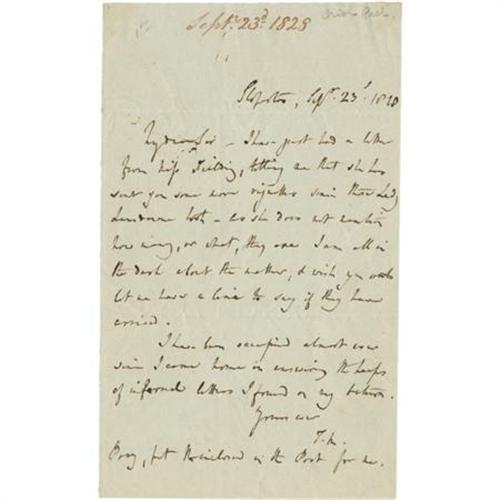 Septr. 23d. 1828
Sloperton, Septr. 23d. 1828
My dear Sir – I have just had a letter
from Miss Fielding, telling me that she has
sent you some more vignettes since those Lady
Lansdowne took – as she does not mention
how many, or what, they are I am all in
the dark about the matter, & wish you would
let me have a line to say if they have
arrived.
I have been occupied almost ever
since I came home in answering the heaps
of infernal letters I found on my return.
Yours ever
T. M.
Pray, put the inclosed in the Post for me.